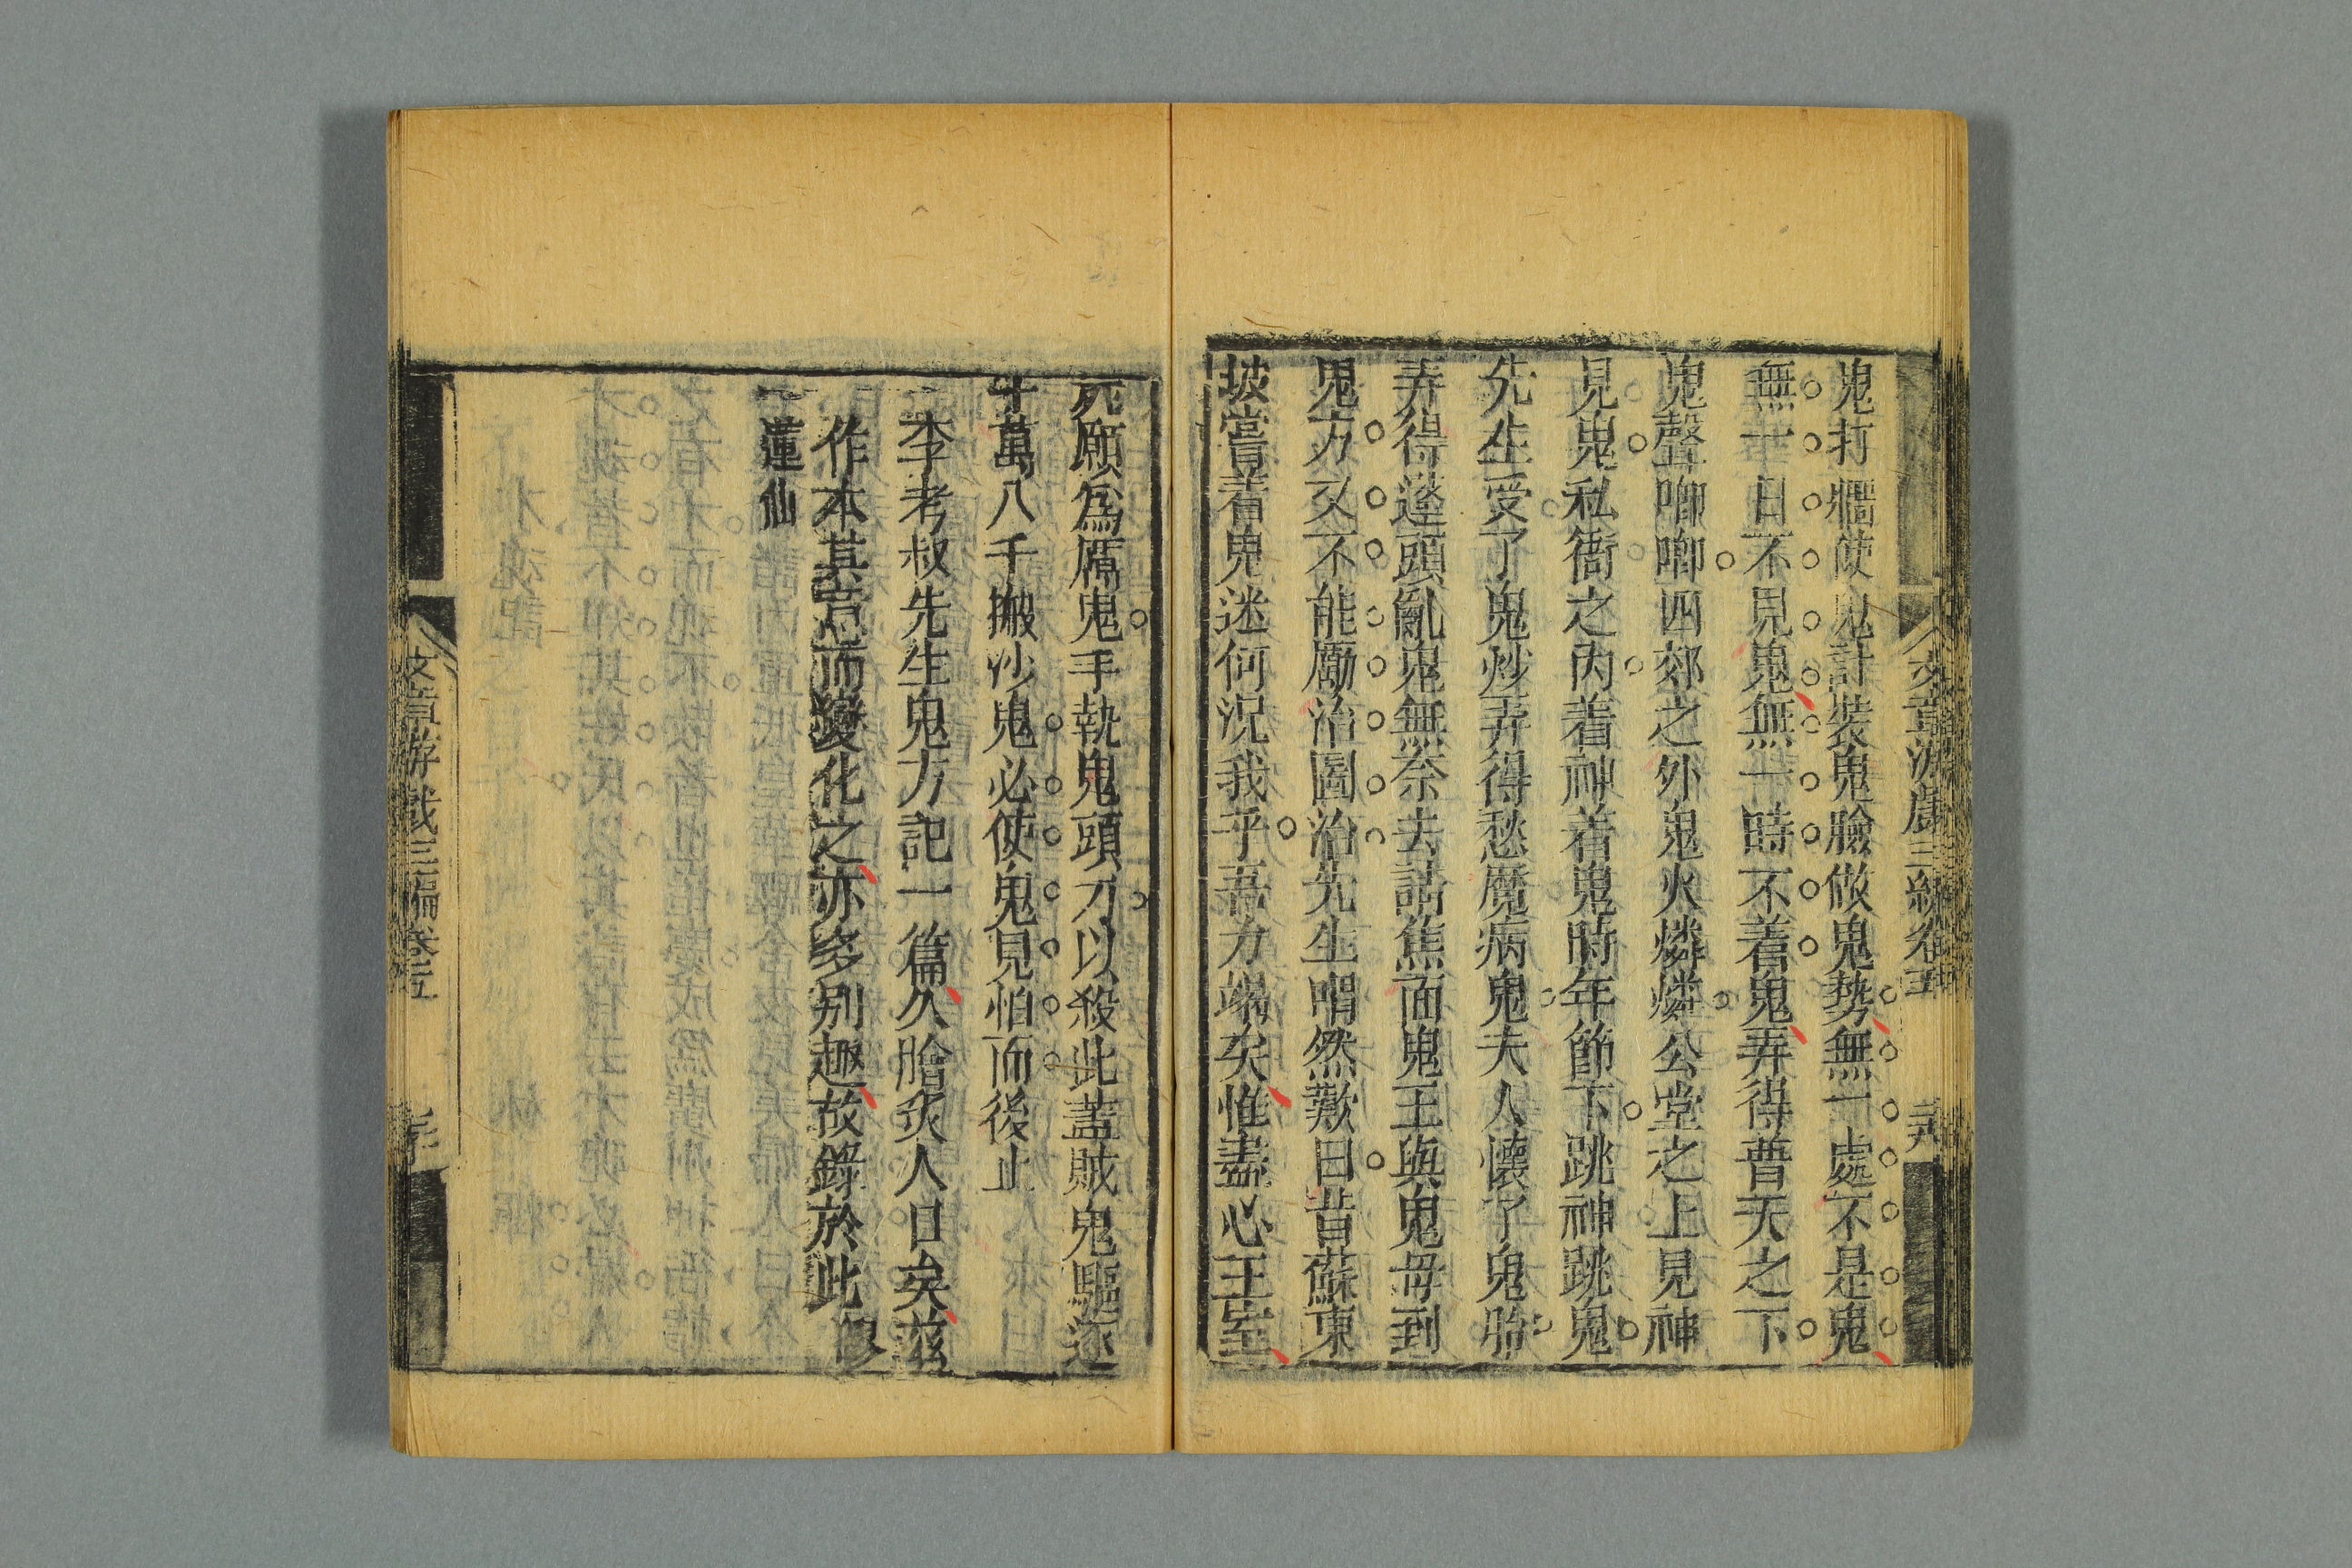 文章游戲三編卷五
鬼打牆使鬼計裝鬼臉做鬼勢無一處不是鬼
無一日不見鬼無一時不着鬼弄得普天之下
鬼聲啣啣四郊之外鬼火燐燐公堂之上見神
見鬼私衙之內着神着鬼時年節下跳神跳鬼
先生受了鬼炒弄得愁魔病鬼夫人懷了鬼胎
弄得蓬頭亂鬼無奈去請焦面鬼王與鬼母到
鬼方又不能勵治圖治先生喟然歎曰昔蘇東
坡嘗着鬼迷何況我乎吾力竭矣惟盡心王室
死願爲厲鬼手執鬼頭刀以殺此蓋賊鬼驅逐
十萬八千撇沙鬼必使鬼見怕而後止
李考叔先生鬼方記一篇久膾炙人口矣兹
作本其意而變化之亦多別趣故錄於此
蓮仙
文章游戲三編卷五